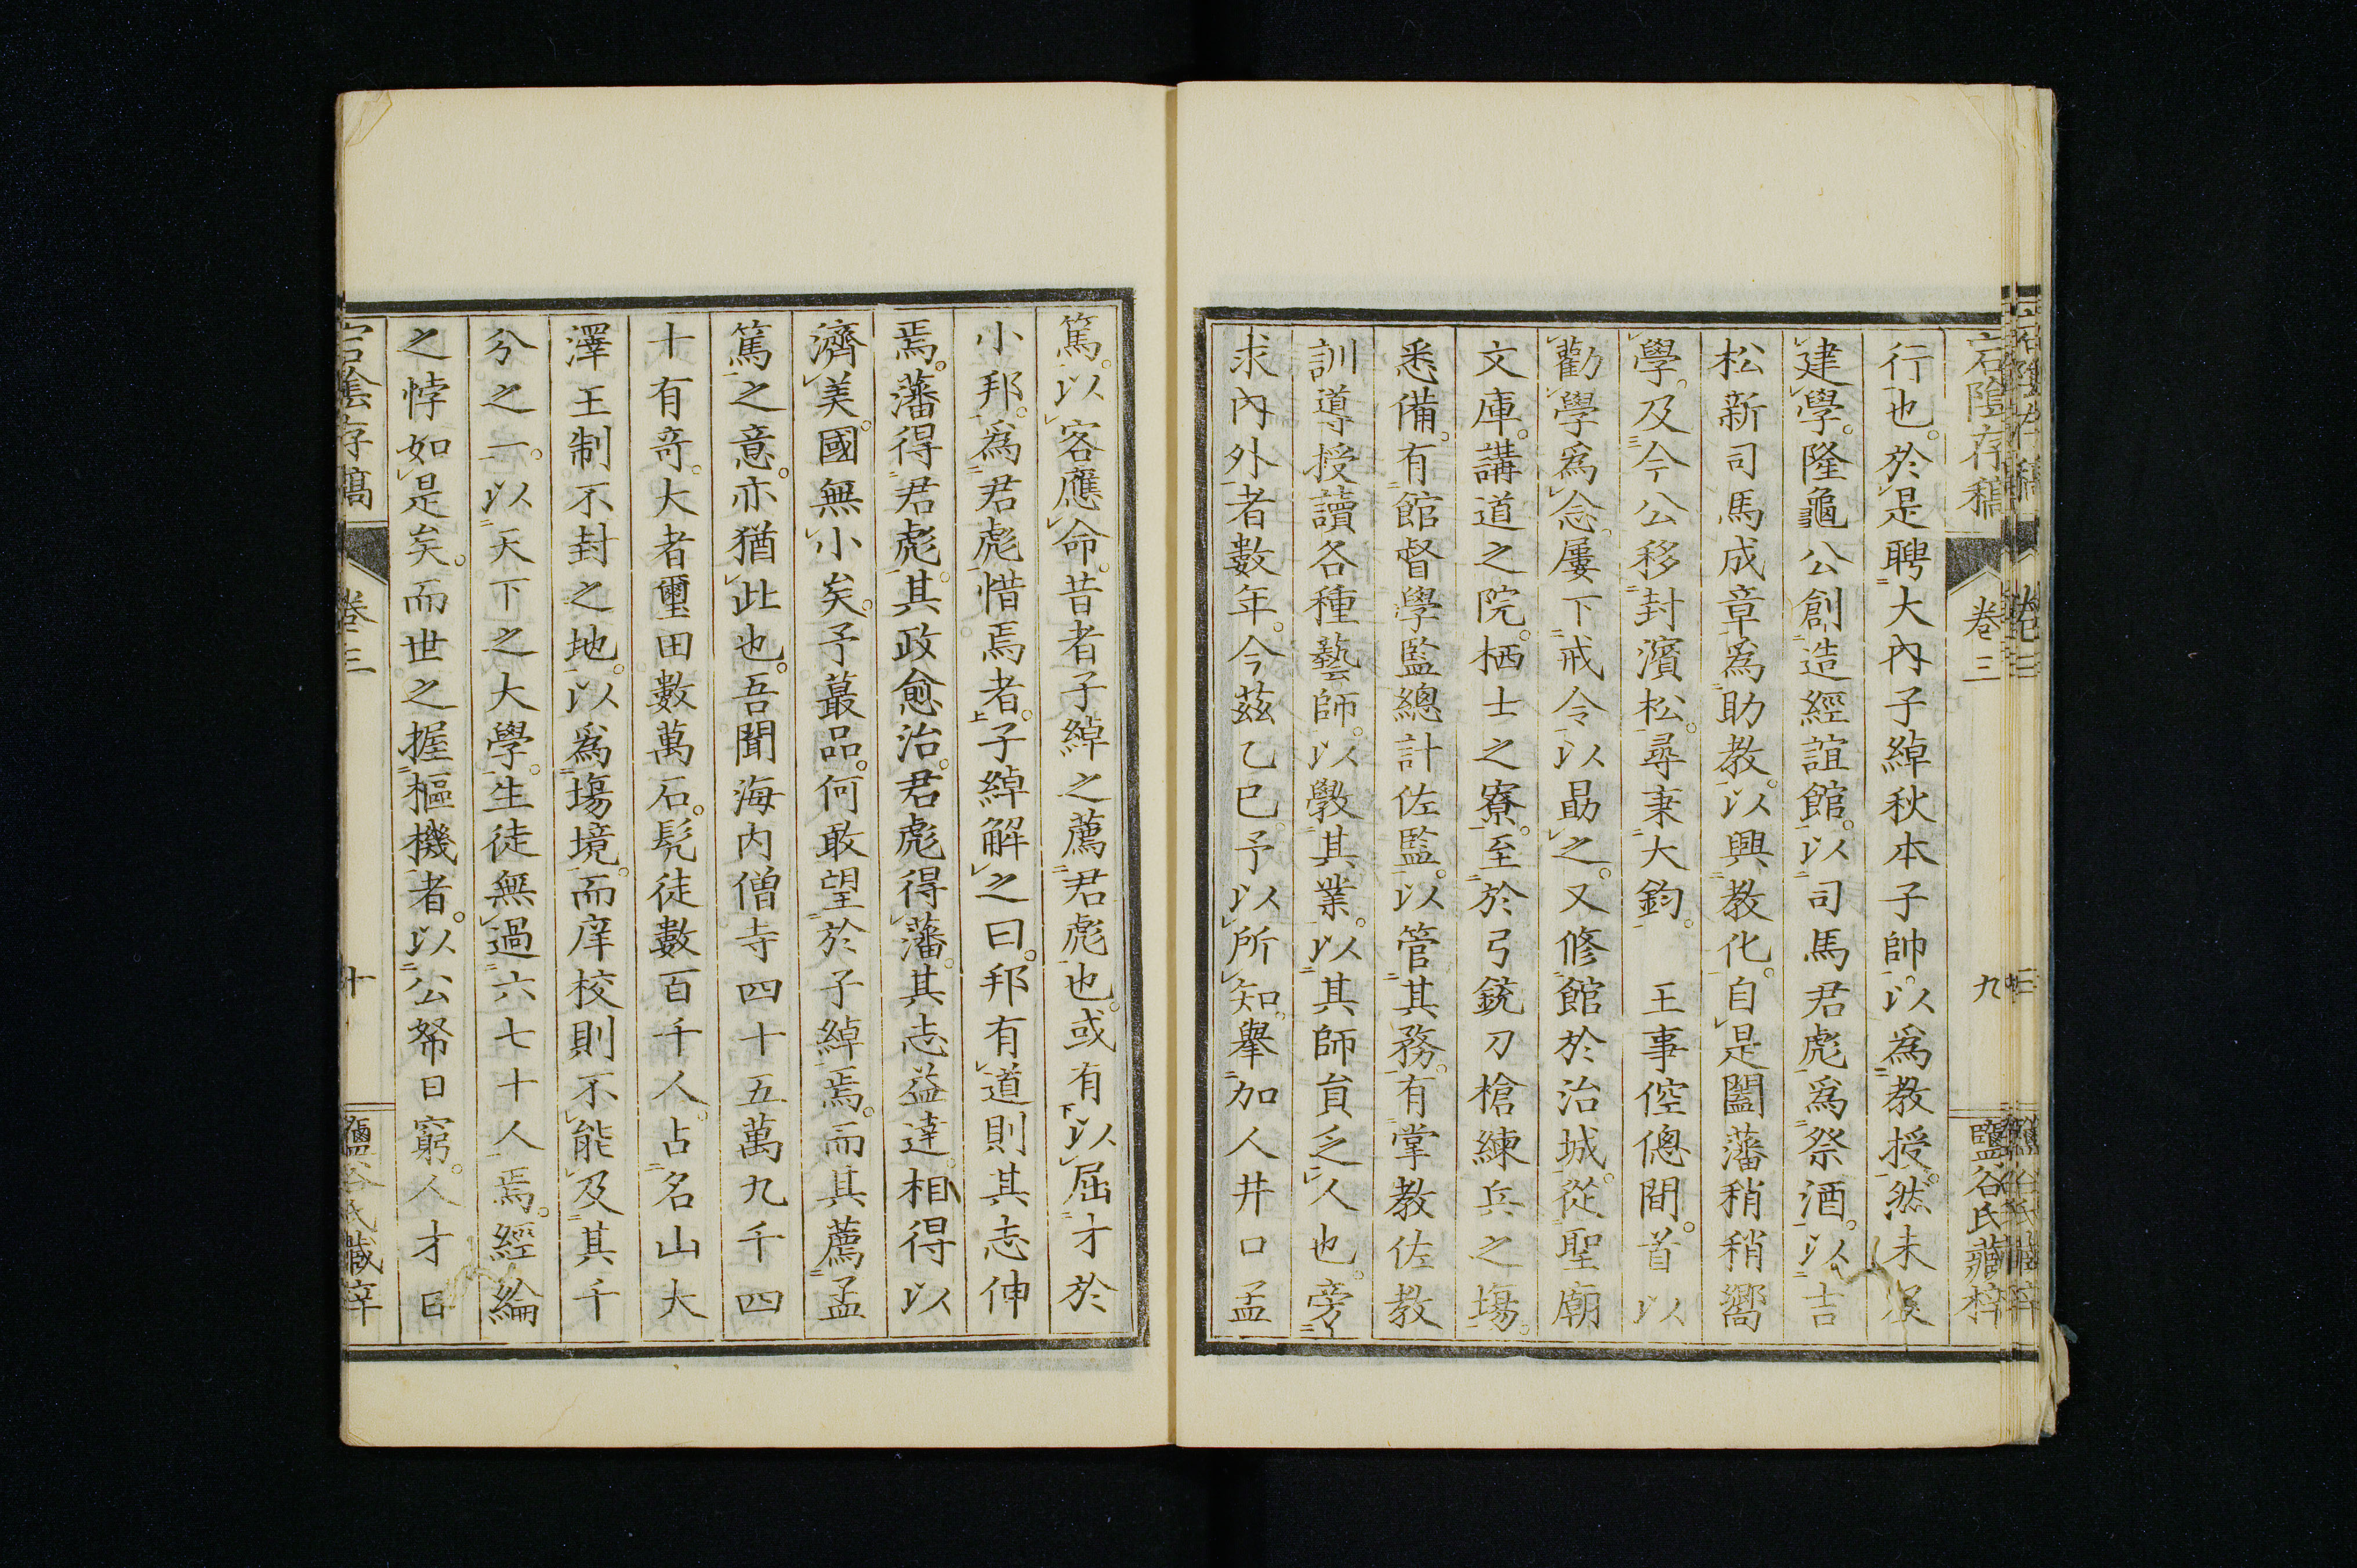 宕陰存稿 卷三 九 鹽谷氏藏梓
行也。於是聘大內子綽秋本子帥。以爲教授。然未遑
建學。隆龜公創造經誼館。以司馬君彪爲祭酒。以吉
松新司馬成章爲助教。以興教化。自是闔藩稍稍嚮
學。及今公移封濱松。尋秉大鈞。王事倥傯間。首以
勸學爲念。屢下戒令以勗之。又修館於治城。從聖廟
文庫。講道之院。栖士之寮。至於弓銃刀槍練兵之場。
悉備。有館督學監總計佐監。以管其務。有掌教佐教
訓導授讀各種藝師。以斆其業。以其師貟乏人也。旁
求內外者數年。今茲乙巳。予以所知。擧加人井口孟
篤。以客應命。昔者子綽之薦君彪也。或有以屈才於
小邦。爲君彪惜焉者。子綽解之曰。邦有道則其志伸
焉。藩得君彪。其政愈治。君彪得藩。其志益達。相得以
濟美。國無小矣。予蕞品。何敢望於子綽焉。而其薦孟
篤之意。亦猶此也。吾聞海内僧寺四十五萬九千四
十有奇。大者璽田數萬石。髠徒數百千人。占名山大
澤王制不封之地。以爲場境。而庠校則不能及其千
分之一。以天下之大學。生徒無過六七十人焉。經綸
之悖如是矣。而世之握樞機者。以公帑日窮。人才日
宕陰存稿 卷三 十 鹽谷氏藏梓